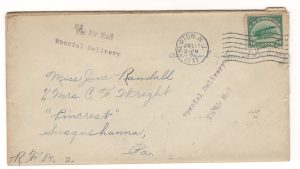 Via Air Mail
Special Delivery
Miss Jane Randall
℅ Mrs C. F. Wright
"Pincrest"
Susquehanna,
Pa.
R.F.D. 2
Special Delivery
Via Air Mail